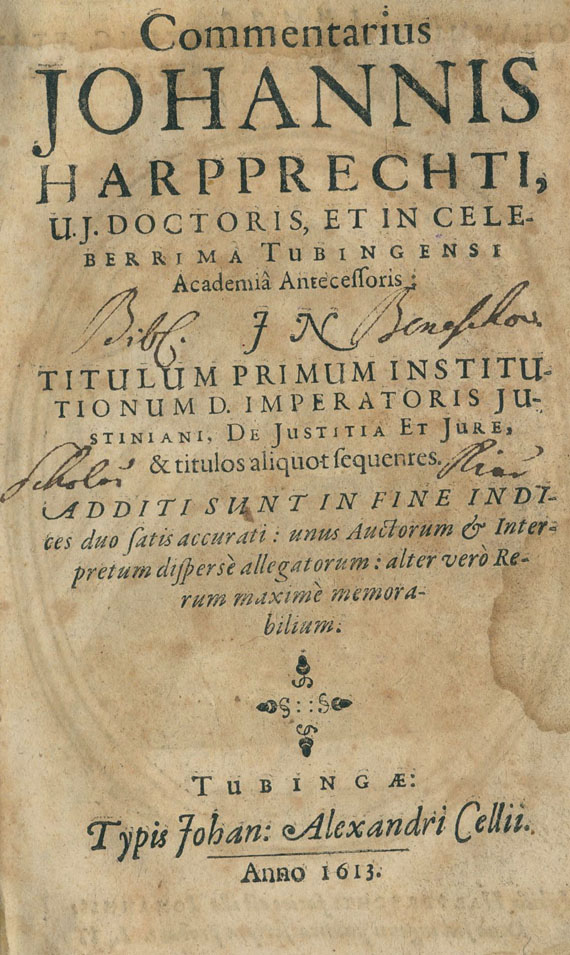 Commentarius
JOHANNIS
HARPPRECHTI,
U. J. DOCTORIS, ET IN CELE-
BERRIMA TUBINGENSI
Academiâ Antecessoris:
Bibl. IN Beneschov.
TITULUM PRIMUM INSTITU-
TIONUM D. IMPERATORIS JU-
STINIANI, DE JUSTITIA ET JURE,
& titulos aliquot sequentes.
Scholar Piar
ADDITI SUNT IN FINE INDI-
ces duo satis accurati: unus Auctorum & Inter-
pretum dispersè allegatorum: alter verò Re-
rum maximè memora-
bilium.
TUBINGÆ:
Typis Johan: Alexandri Cellii.
Anno 1613.